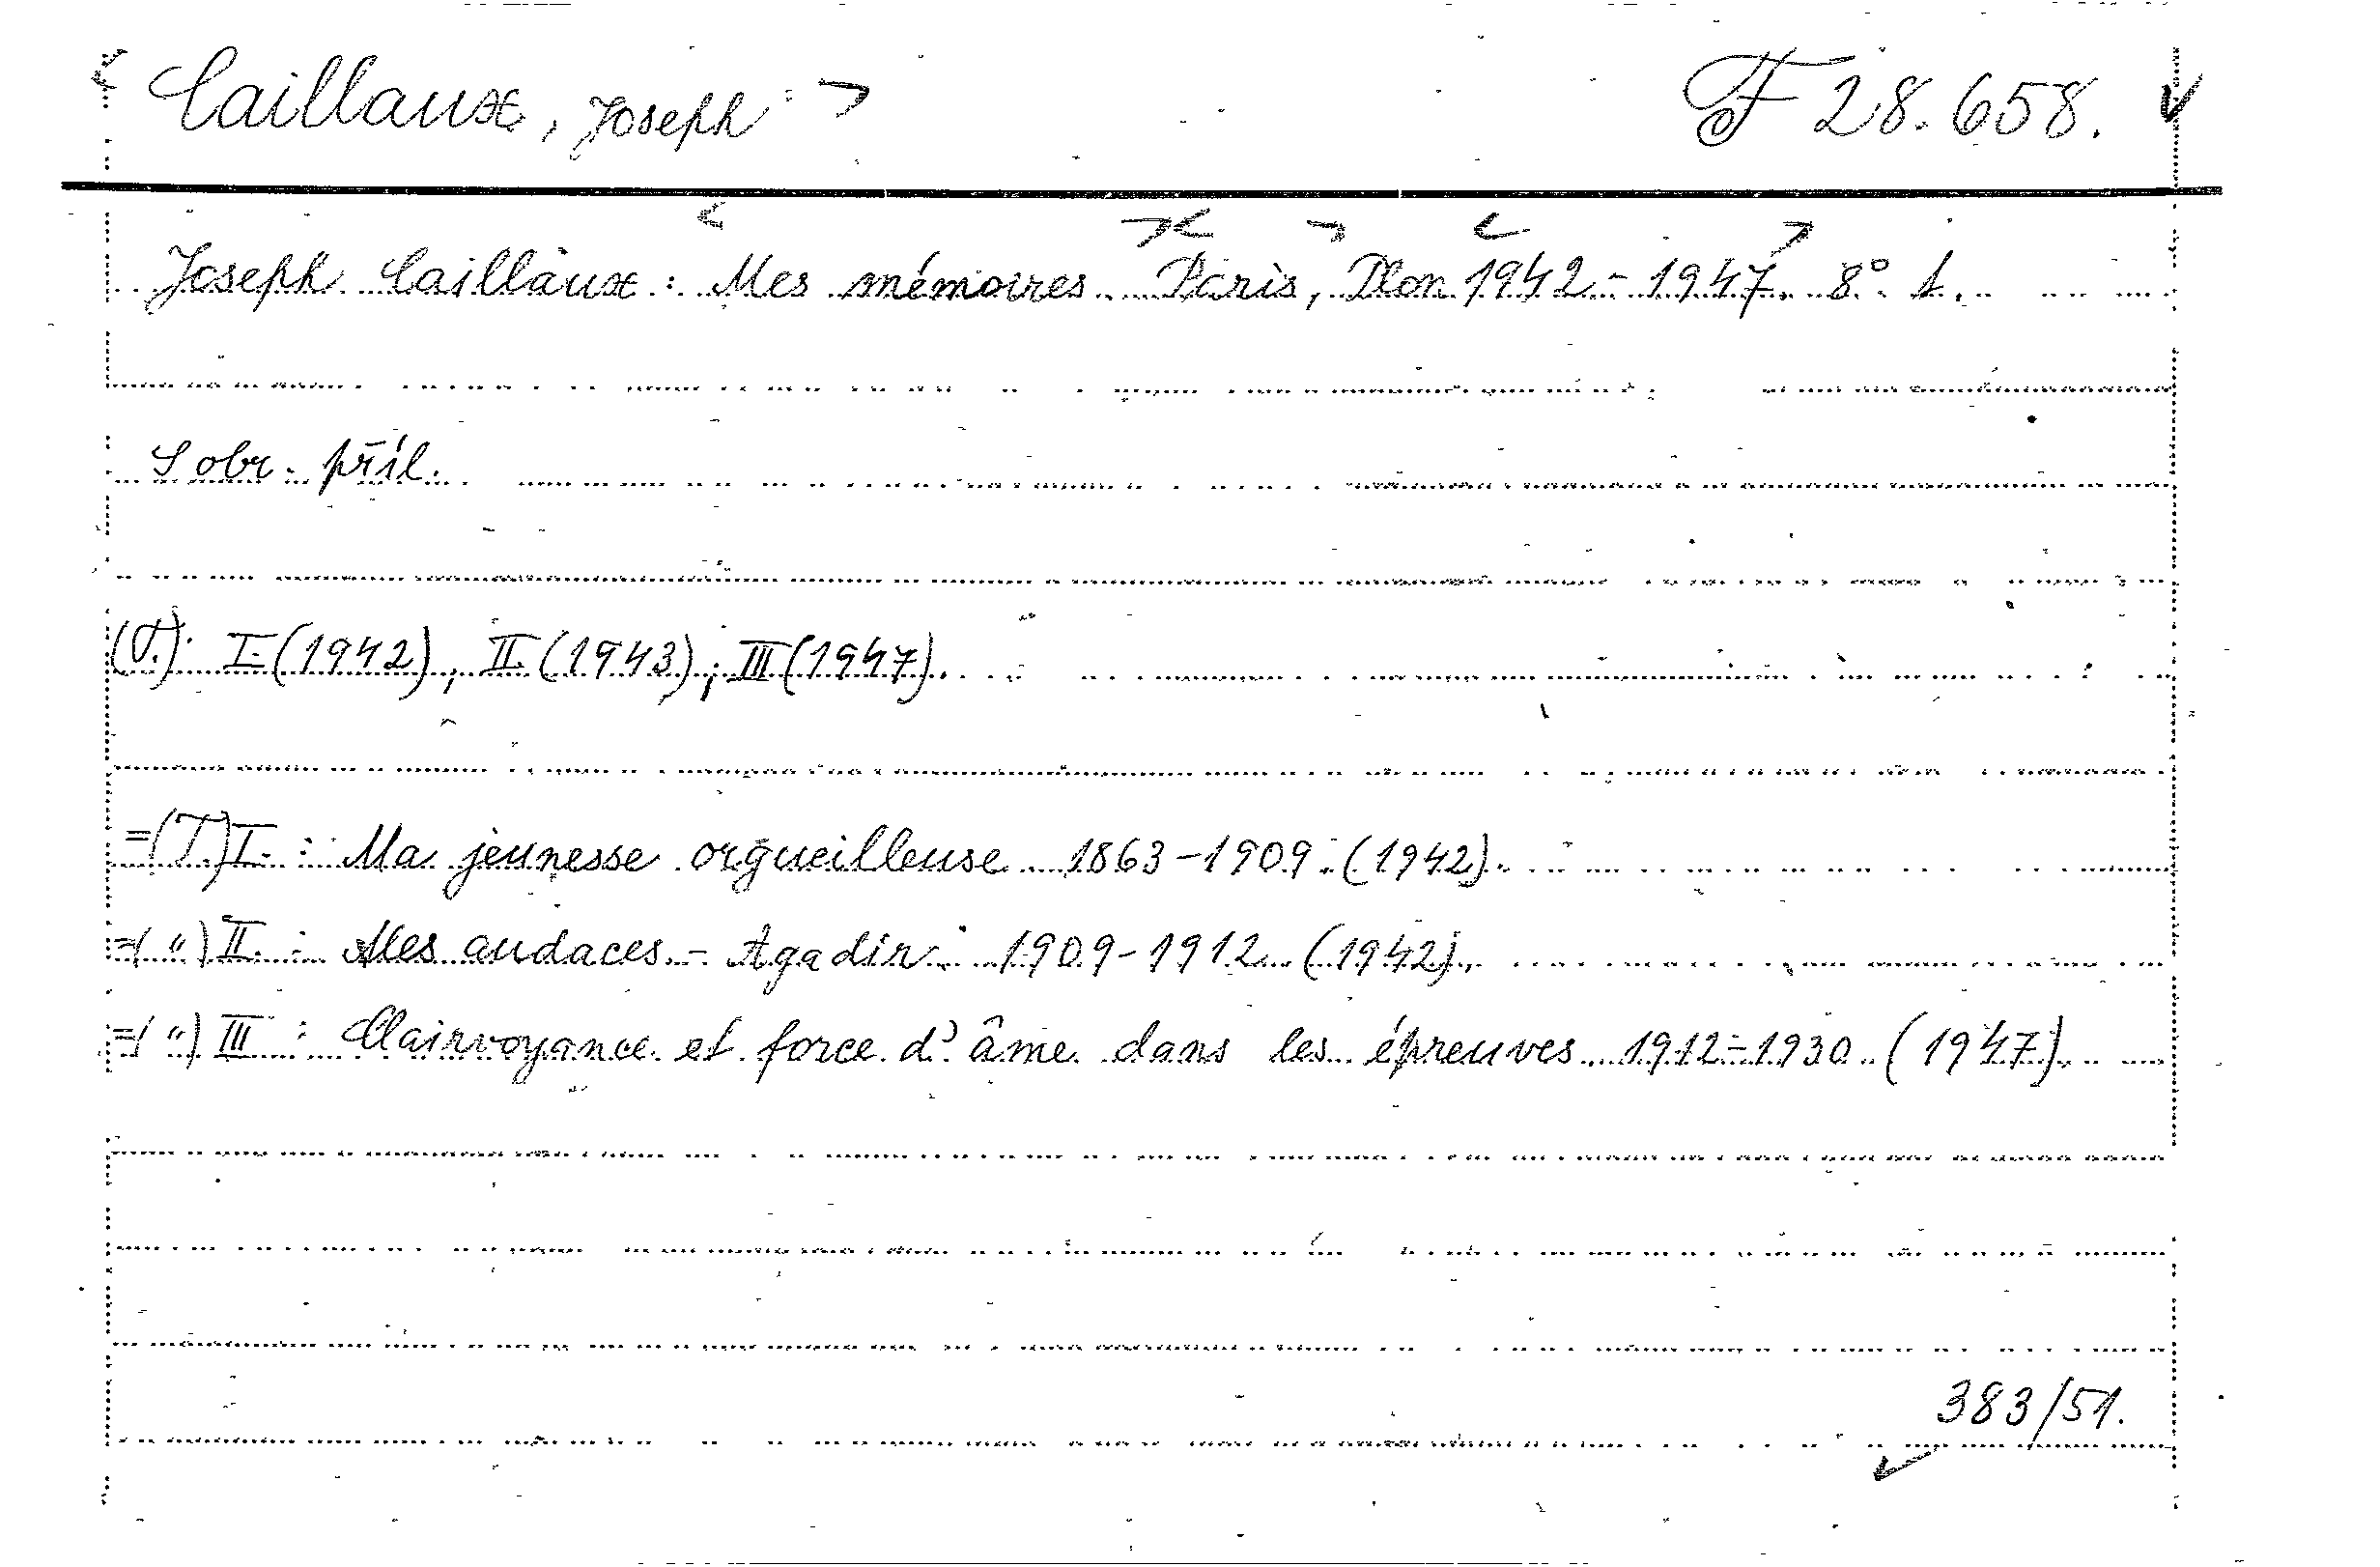 Caillaux, Joseph F 28.658.
Joseph Caillaux: Mes mémoires. Paris, Plon 1942-1947. 8° 1.
S obr. příl.
(T.): I. (1942), II. (1943); III (1947).
=(T.) I. : Ma jeunesse orgueilleuse 1863-1909. (1942).
=( " ) II. : Mes audaces - Agadir. 1909-1912 (1942).
=( " ) III : Clairvoyance et force d'âme dans les épreuves 1912-1930 (1947).
383/51.